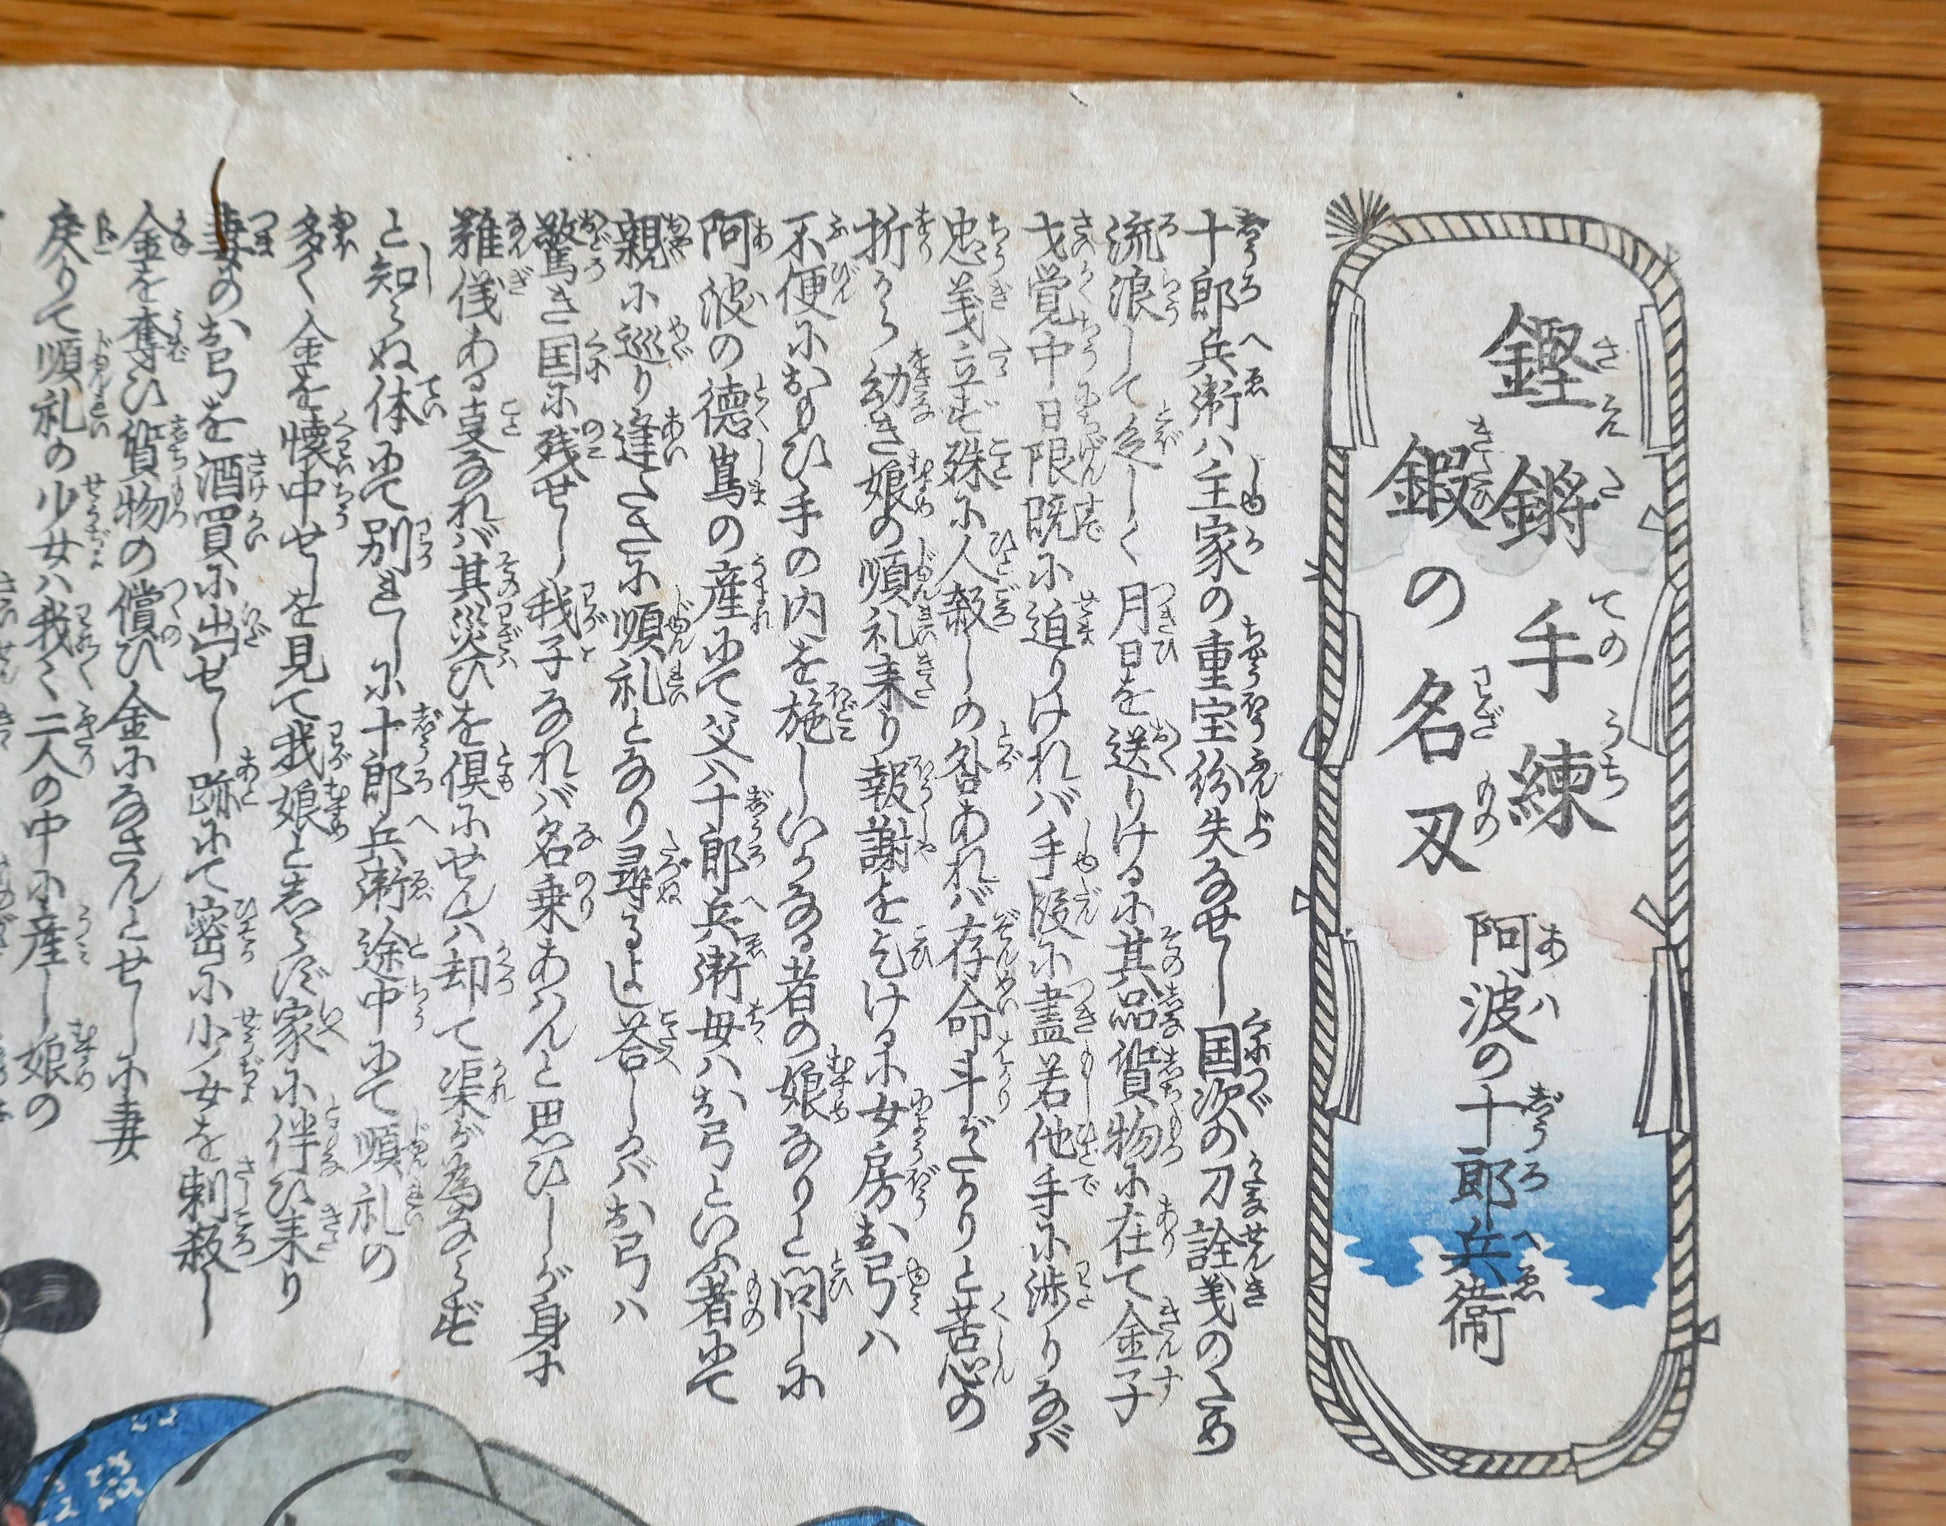 鏗鏘手練
鍜の名刄
阿波の十郎兵衞
十郎兵衛ハ主家の重宝紛失なせし国次の刀詮義のため
流浪して久しく月日を送りけるに其品質物に在て金子
才覚中日限既に迫りけれバ手段に盡若他手に渉りなバ
忠義立ず殊に人殺しの咎あれバ存命斗がたりと苦心の
折から幼き娘の順礼来り報謝を乞ける小女房お弓ハ
不便におもひ手の内を施しいかなる者の娘なりと問しに
阿波の徳島の産にて父ハ十郎兵衛母ハお弓といふ者にて
親に巡り逢たさに順礼となり尋るよし答しかバお弓ハ
驚き国に残せし我子なれバ名乗あはんと思ひしが身に
難儀ある事なれバ其災ひを倶にせんハ却て渠が為ならず
と知らぬ体にて別れしに十郎兵衛途中にて順礼の
多く金を懐中せしを見て我娘と志らず家に伴ひ来り
妻のお弓を酒買に出せし跡にて密に少女を刺殺し
金を奪ひ質物の償ひ金になさんとせしに妻
戻りて順礼の少女ハ我々二人の中に産し娘の